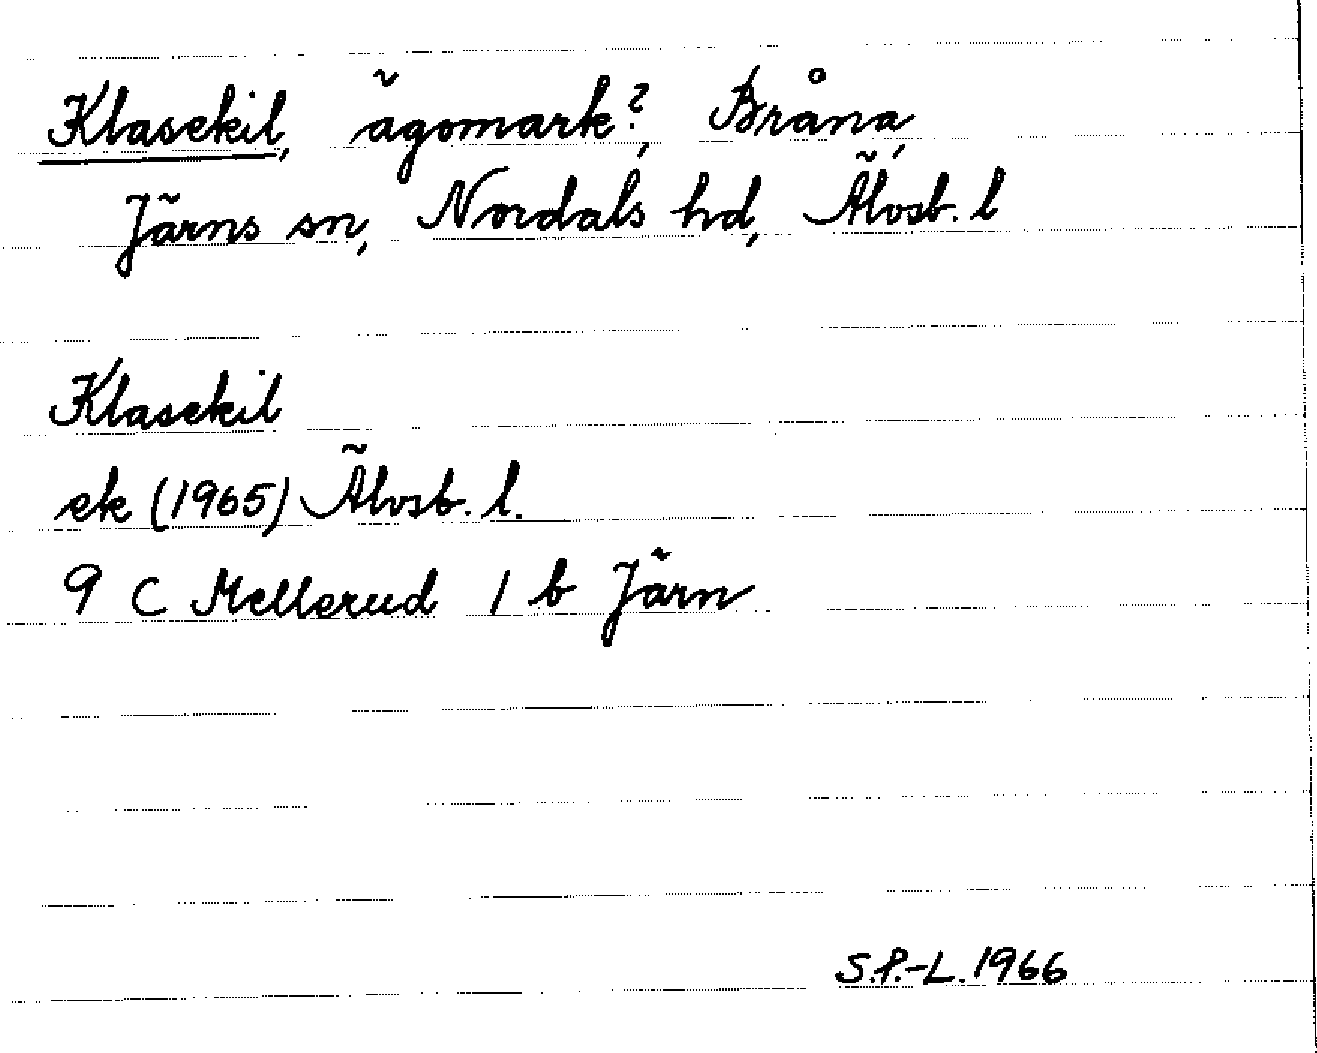 Klasekil, ägomark?, Bråna,
Järns sn, Nordals hd, Älvsb. l
Klasekil
ek (1965) Älvsb. l.
9 C Mellerud 1 b Järn
S.P.-L. 1966